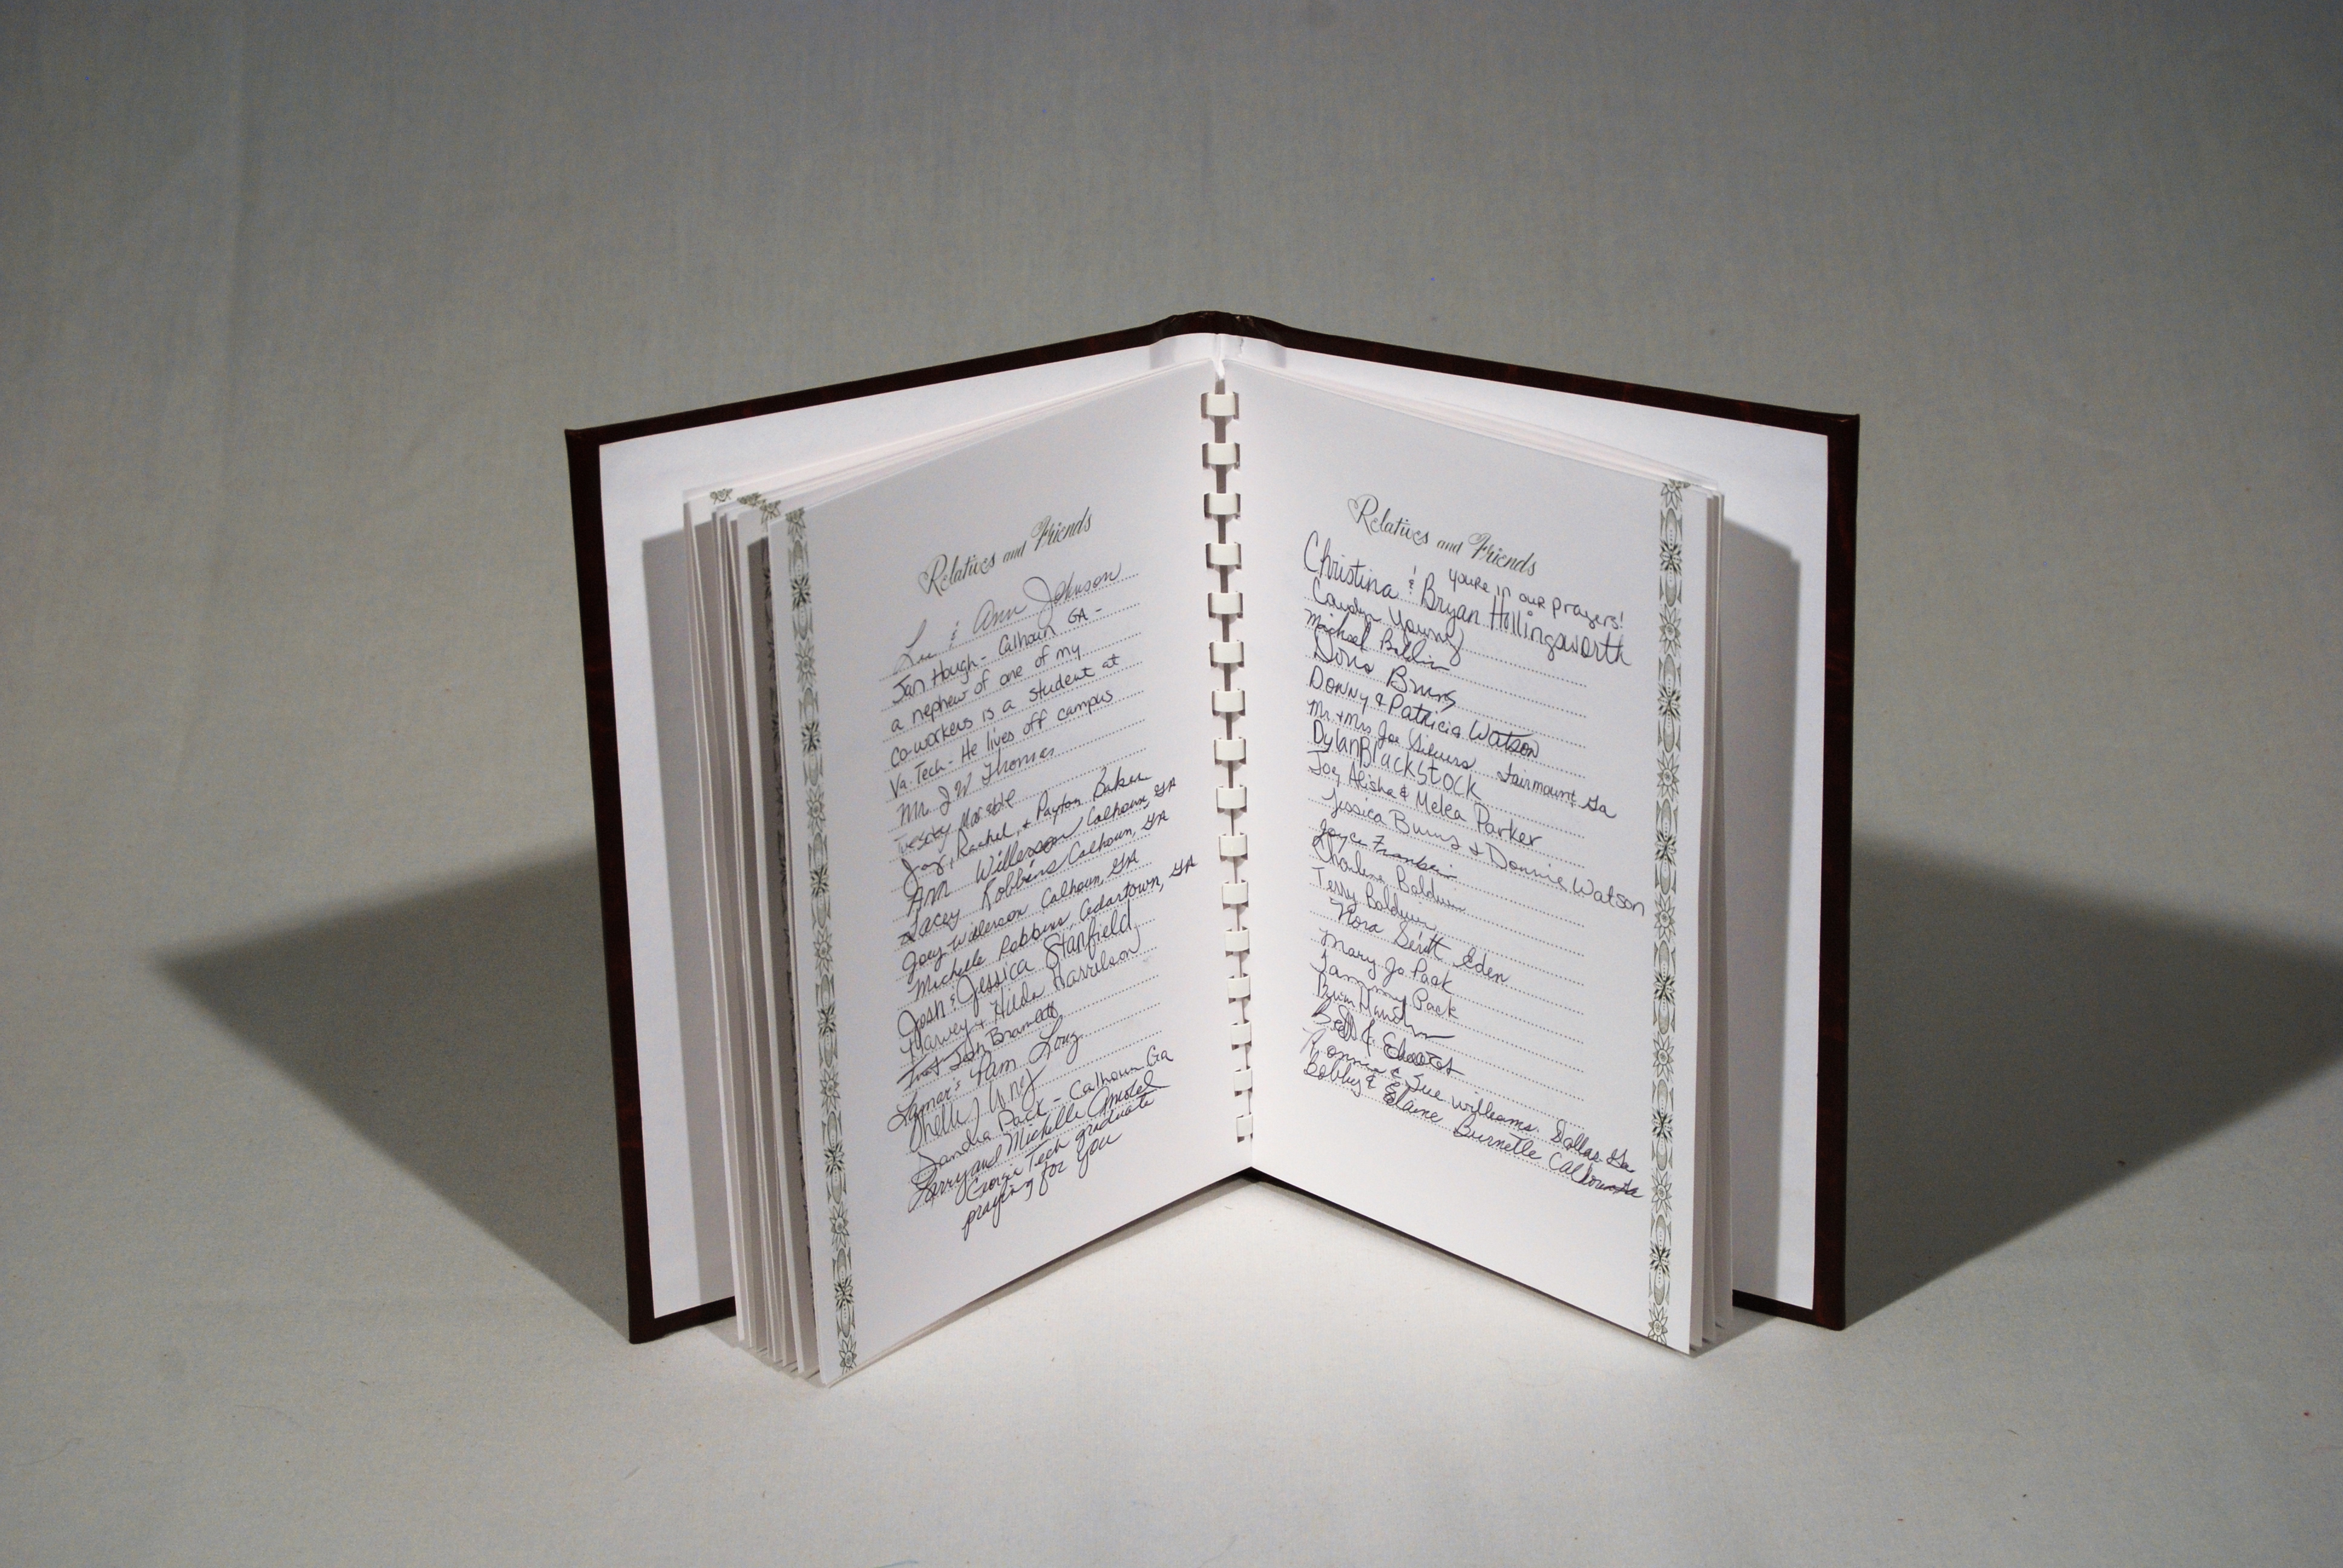 Relatives and Friends
Lee & Ann Johnson
Jan Hough - Calhoun GA -
a nephew of one of my
co-workers is a student at
Va. Tech - He lives off campus
Mr. J W Thomas
Tuesday
Jay, Rachel, & Payton Baker
Ann Wilkerson Calhoun, GA
Lacey Robbins Calhoun, GA
Joey Wilkerson Calhoun, GA
Michele Robbins Cedartown, GA
Josh & Jessica Stanfield
Harvey & Hilda Harrelson
Bramlett
Lamar & Pam Long
Shelley
Sandra Pack - Calhoun Ga
Larry and Michelle
Georgia Tech graduate
praying for you
Relatives and Friends
You're in our prayers!
Christina & Bryan Hollingsworth
Young
Michael Baldwin
Burns
Donny & Patricia Watson
Mr. & Mrs Joe Fairmount, Ga
Dylan Blackstock
Joey Alisha & Melea Parker
Jessica Burns & Donnie Watson
Joyce
Charlene Baldwin
Terry Baldwin
Nora Eden
Mary Jo Pack
Tammy Pack
Brian
Ronnie & Sue Williams. Dallas Ga
Bobby & Elaine Burnette Calhoun Ga